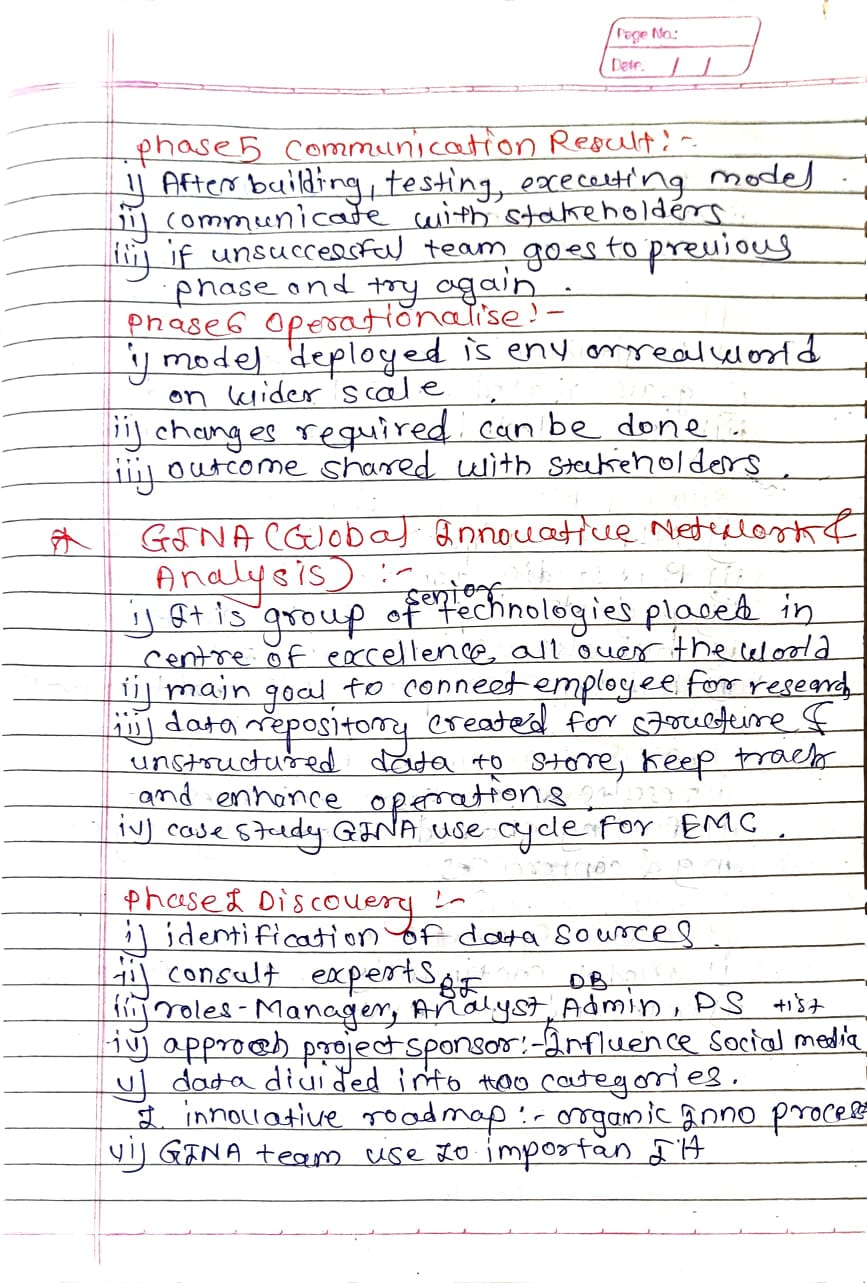 Page No.:
Date. / /
phase5 Communication Result:-
i) After building, testing, excecuting model.
ii) communicate with stakeholders
iii) if unsuccessful team goes to previous
phase and try again.
Phase6 Operationalise:-
i) model deployed is env or real world
on wider scale.
ii) changes required can be done.
iii) outcome shared with stakeholders.
GINA (Global Innovative Network &
Analysis) :-
senior
i) It is group of technologies placed in
centre of excellence, all over the world
ii) main goal to connect employee for research
iii) data repository created for structure &
unstructured data to store, keep track
and enhance operations.
iv) case study GINA use cycle for EMC.
Phase1 Discovery :-
i) identification of data sources.
ii) consult experts
BI DB
iii) roles - Manager, Analyst, Admin, DS tist
iv) approach project sponsor:- Influence social media
v) data divided into too categories.
I. innovative roadmap :- organic Inno proces
vi) GINA team use 20 importan IH